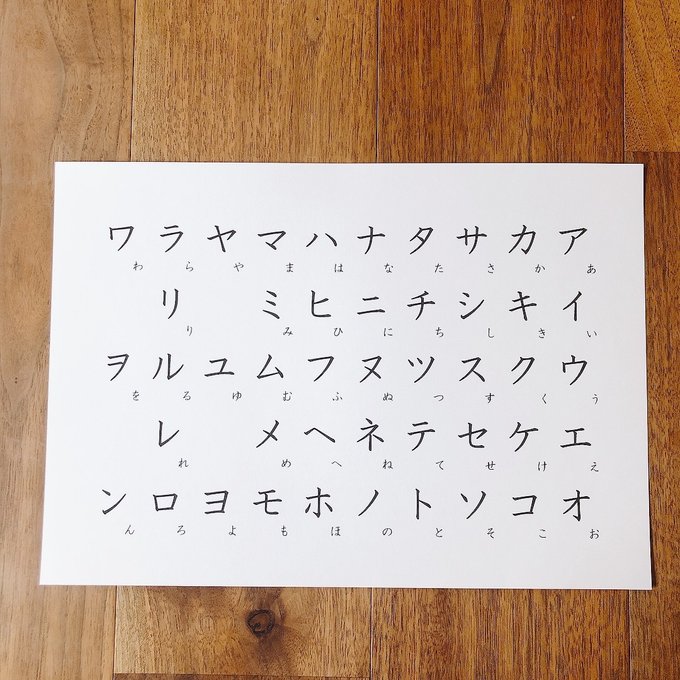 アイウエオ
あいうえお
カキクケコ
かきくけこ
サシスセソ
さしすせそ
タチツテト
たちつてと
ナニヌネノ
なにぬねの
ハヒフヘホ
はひふへほ
マミムメモ
まみむめも
ヤユヨ
やゆよ
ラリルレロ
らりるれろ
ワヲン
わをん